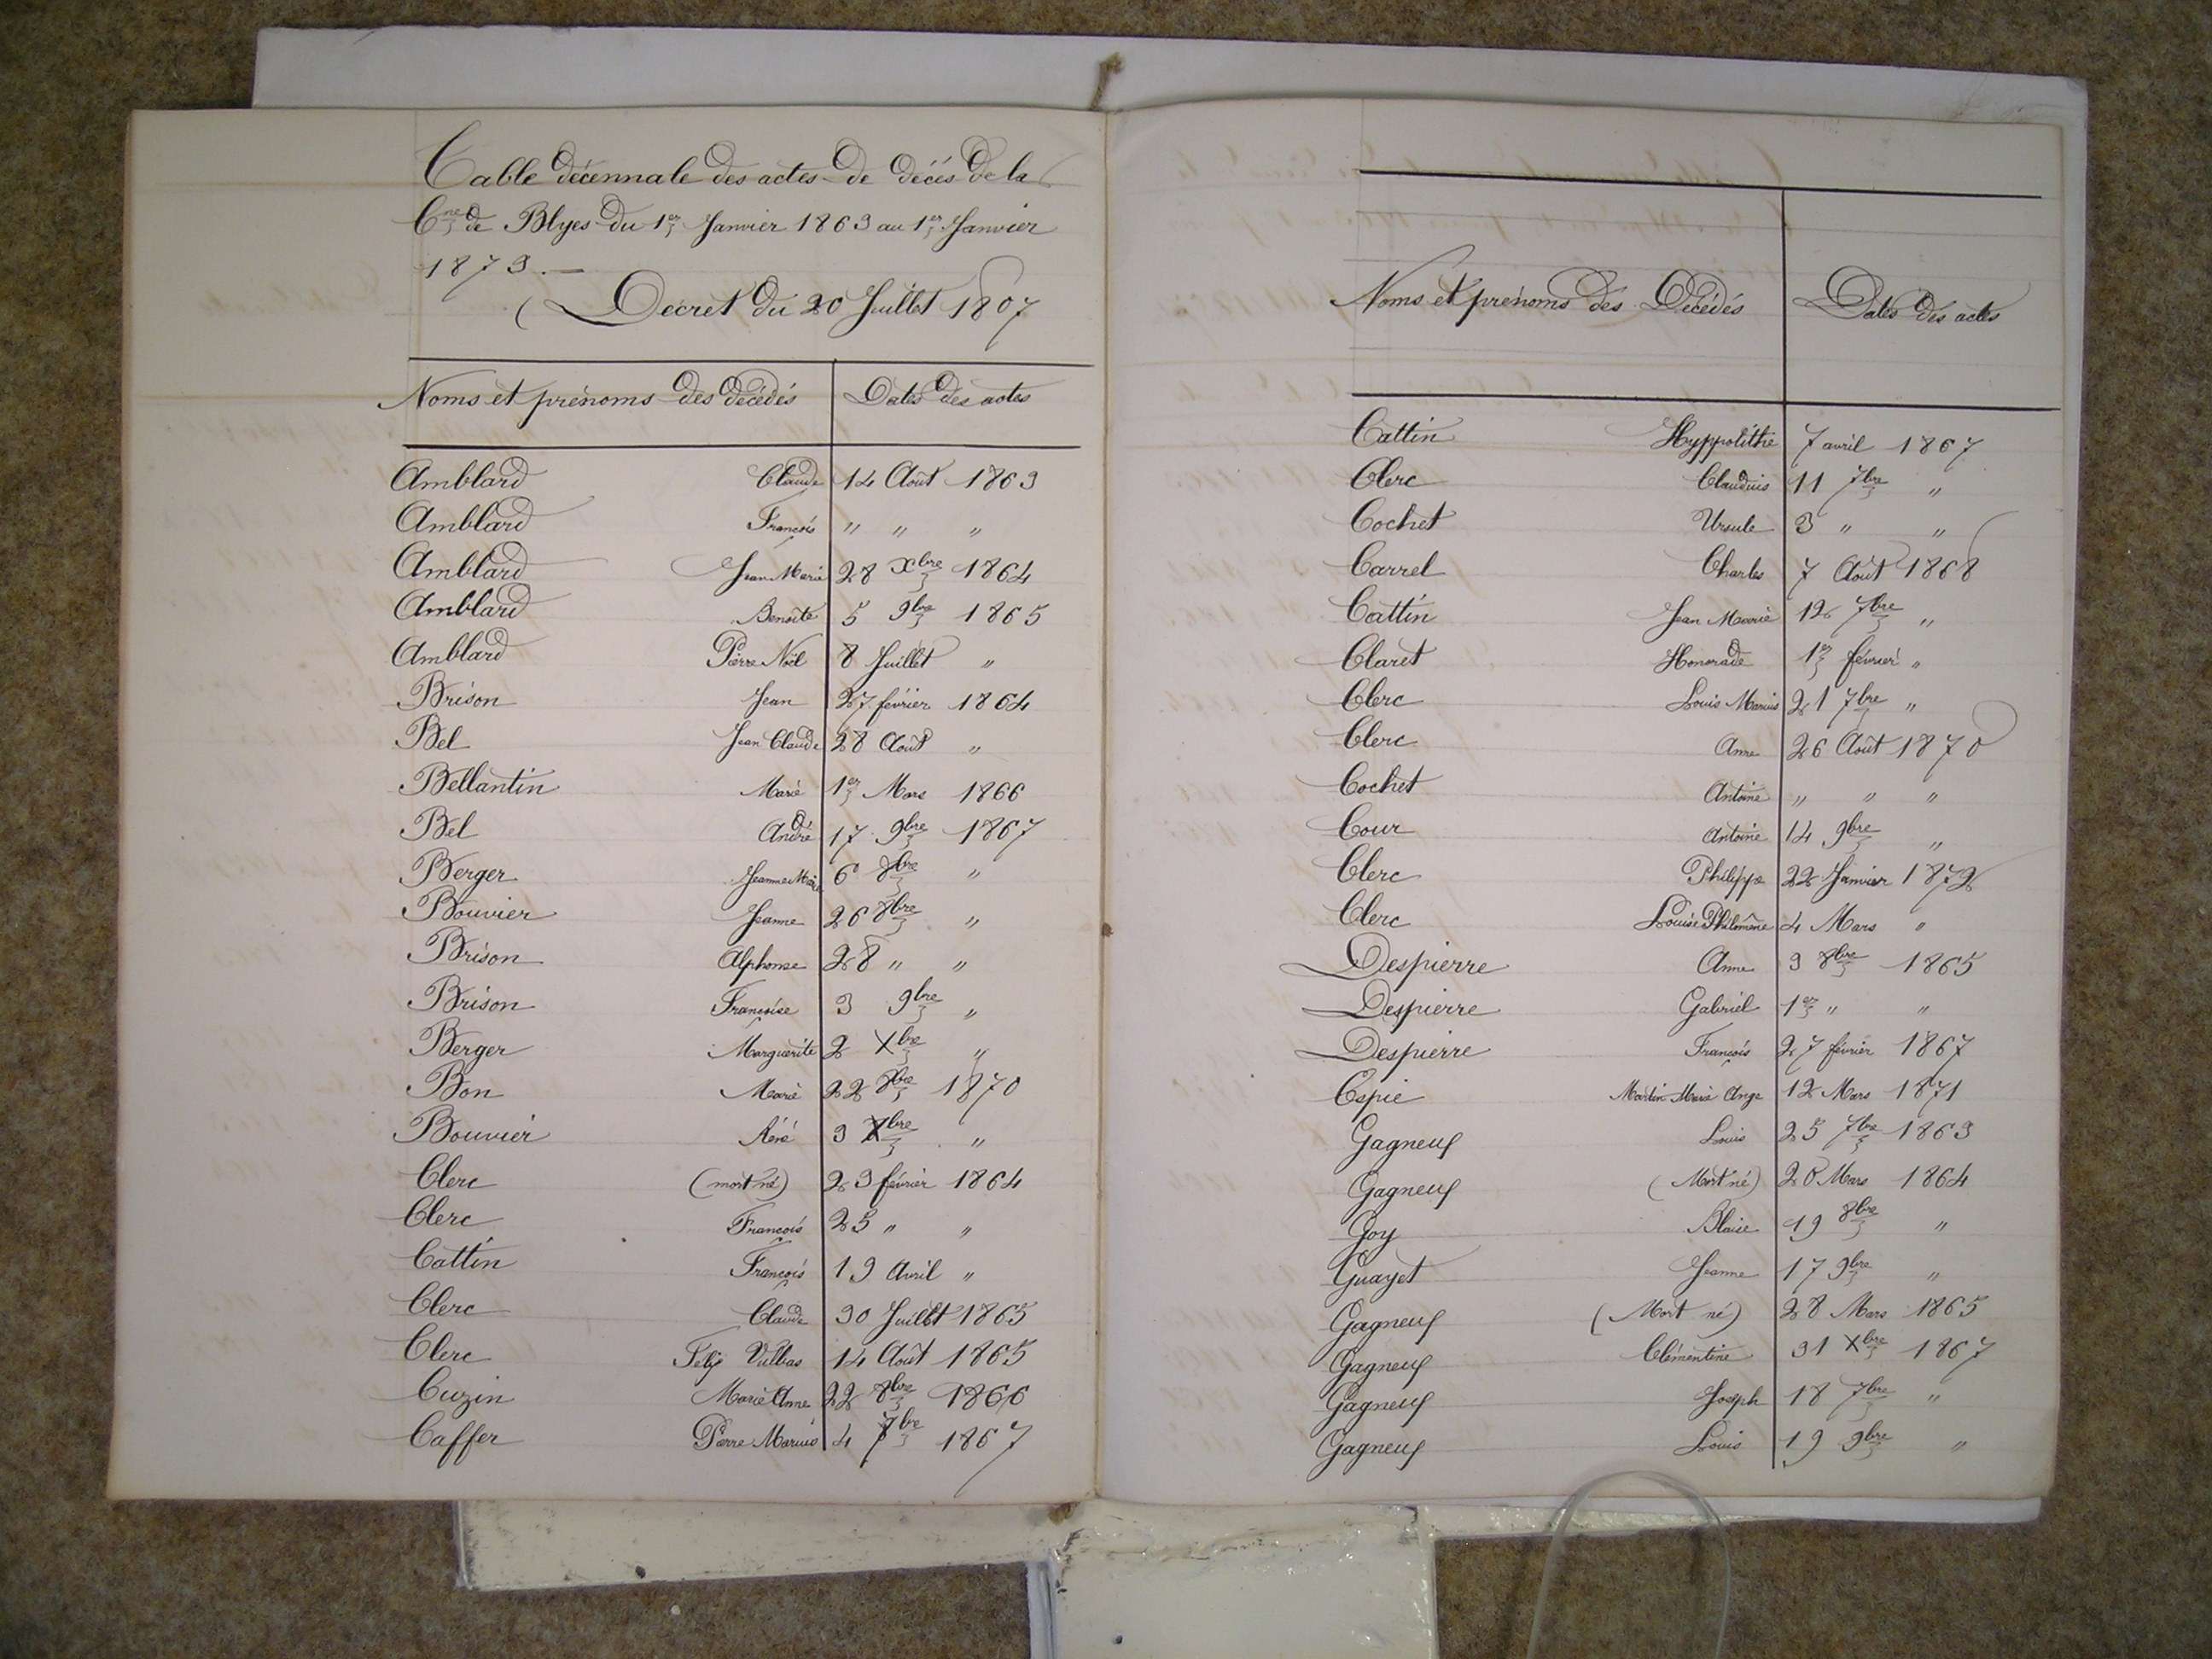 Table décennale des actes de décès de la
Cne de Blyes du 1er Janvier 1863 au 1er Janvier
1873.—
( Décret du 20 Juillet 1807
Noms et prénoms des décédés Dates des actes
Amblard Claude 14 Août 1863
Amblard François " " "
Amblard Jean Marie 28 Xbre 1864
Amblard Benoîte 5 9bre 1865
Amblard Pierre Noël 8 Juillet "
Brison Jean 27 février 1864
Bel Jean Claude 28 Août "
Bellantin Marie 1er Mars 1866
Bel André 17 9bre 1867
Berger Jeanne Marie 6 8bre "
Bouvier Jeanne 26 8bre "
Brison Alphonse 28 " "
Brison Françoise 3 9bre "
Berger Marguerite 2 Xbre "
Bon Marie 22 8bre 1870
Bouvier Réné 3 Xbre "
Clerc (mort né) 23 février 1864
Clerc François 25 " "
Cattin François 19 Avril "
Clerc Claude 30 Juillet 1865
Clerc Félix Vulbas 14 Août 1865
Cuzin Marie Anne 22 8bre 1866
Caffer Pierre Marius 4 7bre 1867
Noms et prénoms des Décédés Dates des actes
Cattin Hyppolithe 7 avril 1867
Clerc Claudius 11 7bre "
Cochet Ursule 3 " "
Carrel Charles 7 Août 1868
Cattin Jean Marie 12 7bre "
Claret Honorade 1er février "
Clerc Louis Marius 21 7bre "
Clerc Anne 26 Août 1870
Cochet Antoine " " "
Cour Antoine 14 9bre "
Clerc Philippe 22 Janvier 1872
Clerc Louise Philomène 4 Mars "
Despierre Anne 3 8bre 1865
Despierre Gabriel 1er " "
Despierre François 27 février 1867
Espie Martin Marie Ange 12 Mars 1871
Gagneuf Louis 25 7bre 1863
Gagneuf (Mort né) 20 Mars 1864
Goy Blaise 19 8bre "
Guayet Jeanne 17 9bre "
Gagneuf (Mort né) 28 Mars 1865
Gagneuf Clémentine 31 Xbre 1867
Gagneuf Joseph 18 7bre "
Gagneuf Louis 19 9bre "